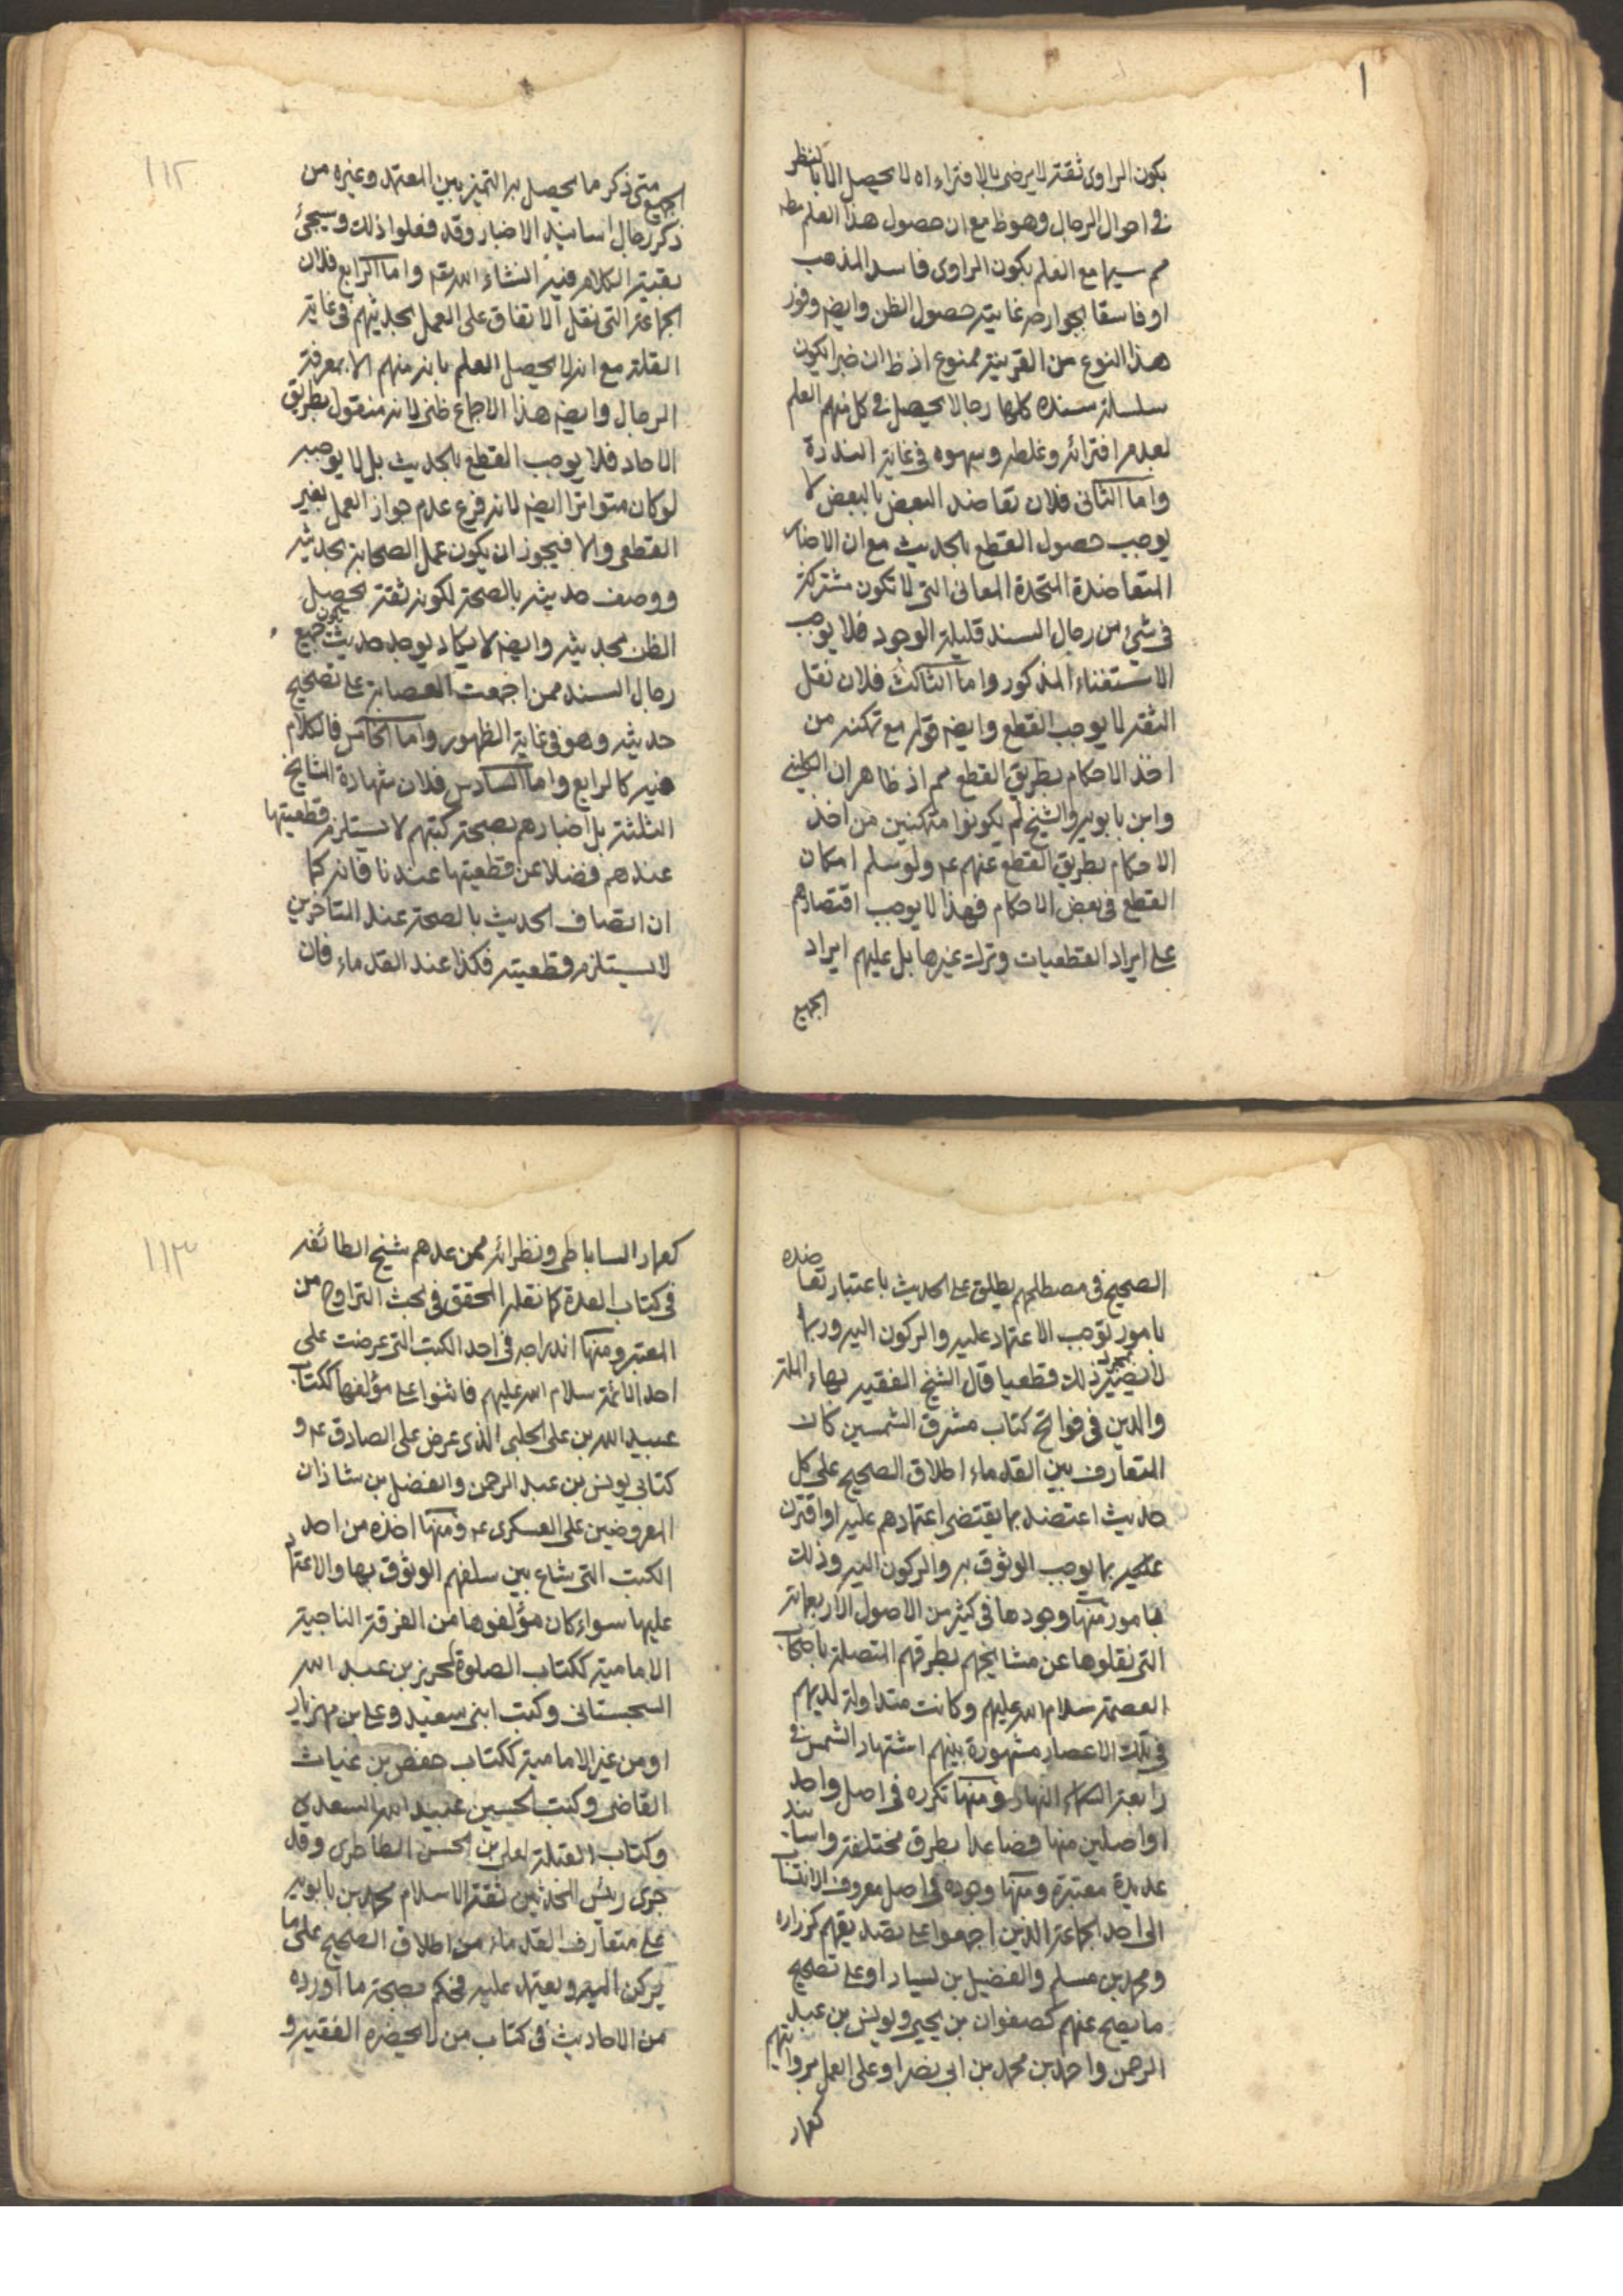 ١
يكون الراوى ثقة لا يرضى بالافتراء اه لا يحصل الا بالنظر
فى احوال الرجال وهو ظ مع ان حصول هذا العلم مط
مم سيما مع العلم بكون الراوى فاسد المذهب
او فاسقا بجوارحه غايته حصول الظن وايضه وفور
هذا النوع من القرينة ممنوع اذ ظ ان خبرا يكون
سلسلة سنده كلها رجالا يحصل فى كل منهم العلم
لعدم افترائه وغلطه وسهوه فى غاية الندرة
واما الثانى فلان تعاضد البعض بالبعض لا
يوجب حصول القطع بالحديث مع ان الاخبار
المتعاضدة المتحدة المعانى التى لا تكون مشتركة
فى شئ من رجال السند قليلة الوجود فلا يوجب
الاستغناء المذكور واما الثالث فلان نقل
الثقة لا يوجب القطع وايضه قوله مع تمكنه من
اخذ الاحكام بطريق القطع مم اذ ظاهر ان الكلينى
وابن بابويه والشيخ لم يكونوا متمكنين من اخذ
الاحكام بطريق القطع عنهم عم ولو سلم امكان
القطع فى بعض الاحكام فهذا لا يوجب اقتصارهم
على ايراد القطعيات وترك غيرها بل عليهم ايراد
الجميع
١١٢
الجميع متى ذكر ما يحصل به التميز بين المعتمد وغيره من
ذكر رجال اسانيد الاخبار وقد فعلوا ذلك وسيجئ
بقية الكلام فيه انشاء الله تعه واما الرابع فلان
الجماعة التى نقل الاتفاق على العمل بحديثهم فى غاية
القلة مع انه لا يحصل العلم بانه منهم الا بمعرفة
الرجال وايضه هذا الاجماع ظنى لانه منقول بطريق
الاحاد فلا يوجب القطع بالحديث بل لا يوجبه
لو كان متواترا ايضه لانه فرع عدم جواز العمل بغير
القطعى والا فيجوز ان يكون عمل الصحابة بحديثه
ووصف حديثه بالصحة لكونه ثقة يحصل
الظن بحديثه وايضه لا يكاد يوجد حديث يكون جميع
رجال السند ممن اجمعت العصابة على تصحيح
حديثه وهو فى غاية الظهور واما الخامس فالكلام
فيه كالرابع واما السادس فلان شهادة المشايخ
الثلثة بل اخبارهم بصحة كتبهم لا يستلزم قطعيتها
عندهم فضلا عن قطعيتها عندنا فانه كما
ان اتصاف الحديث بالصحة عند المتاخرين
لا يستلزم قطعيته فكذا عند القدماء فان
الصحيح فى مصطلحهم يطلق على الحديث باعتبار تعاضده
بامور توجب الاعتماد عليه والركون اليه وربما
لا يصير ذلك قطعيا قال الشيخ الفقيه بهاء الملة
والدين فى فواتح كتاب مشرق الشمسين كان
المتعارف بين القدماء اطلاق الصحيح على كل
حديث اعتضد بما يقتضى اعتمادهم عليه او اقترن
بما يوجب الوثوق به والركون اليه وذلك
بامور منها وجودها فى كثير من الاصول الاربعمائة
التى نقلوها عن مشايخهم بطرقهم المتصلة باصحاب
العصمة سلام الله عليهم وكانت متداولة لديهم
فى تلك الاعصار مشهورة بينهم اشتهار الشمس فى
رابعة النهار ومنها تكرره فى اصل واحد
او اصلين منها فضاعدا بطرق مختلفة واسانيد
عديدة معتبرة ومنها وجوده فى اصل معروف الانتساب
الى احد الجماعة الذين اجمعوا على تصديقهم كزراره
ومحمد بن مسلم والفضيل بن يسار او على تصحيح
ما يصح عنهم كصفوان بن يحيى ويونس بن عبد
الرحمن واحمد بن محمد بن ابى نصر او على العمل بروايتهم
كعمار
١١٣
كعمار الساباطى ونظرائه ممن عدهم شيخ الطائفه
فى كتاب العدة كما نقله المحقق فى بحث التراوح من
المعتبر ومنها اندراجه فى احد الكتب التى عرضت على
احد الائمة سلام الله عليهم فاثنوا على مؤلفها ككتاب
عبيد الله بن على الحلبى الذى عرض على الصادق عم و
كتابى يونس بن عبد الرحمن والفضل بن شاذان
المعروضين على العسكرى عم ومنها اخذه من احد
الكتب التى شاع بين سلفهم الوثوق بها والاعتماد
عليها سواء كان مؤلفوها من الفرقة الناجية
الامامية ككتاب الصلوة لحريز بن عبد الله
السجستانى وكتب ابنى سعيد وعلى بن مهزيار
او من غير الامامية ككتاب حفص بن غياث
القاضى وكتب الحسين عبيد الله السعدى
وكتاب القبلة لعلى بن الحسن الطاطرى وقد
جرى رئيس المحدثين ثقة الاسلام محمد بن بابويه
على متعارف القدماء من اطلاق الصحيح على ما
يركن اليه ويعتمد عليه فحكم بصحة ما اورده
من الاحاديث فى كتاب من لا يحضره الفقيه و